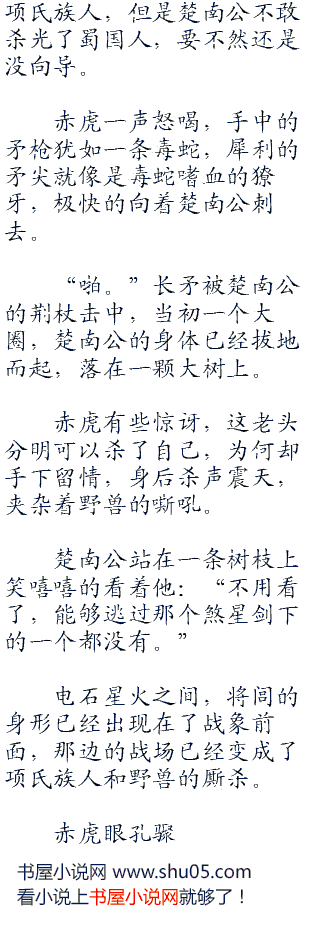 项氏族人，但是楚南公不敢
杀光了蜀国人，要不然还是
没向导。
赤虎一声怒喝，手中的
矛枪犹如一条毒蛇，犀利的
矛尖就像是毒蛇嗜血的獠
牙，极快的向着楚南公刺
去。
“啪。”长矛被楚南公
的荆杖击中，当初一个大
圈，楚南公的身体已经拔地
而起，落在一颗大树上。
赤虎有些惊讶，这老头
分明可以杀了自己，为何却
手下留情，身后杀声震天，
夹杂着野兽的嘶吼。
楚南公站在一条树枝上
笑嘻嘻的看着他：“不用看
了，能够逃过那个煞星剑下
的一个都没有。”
电石星火之间，将闾的
身形已经出现在了战象前
面，那边的战场已经变成了
项氏族人和野兽的厮杀。
赤虎眼孔骤
书屋小说网 www.shu05.com
看小说上书屋小说网就够了！